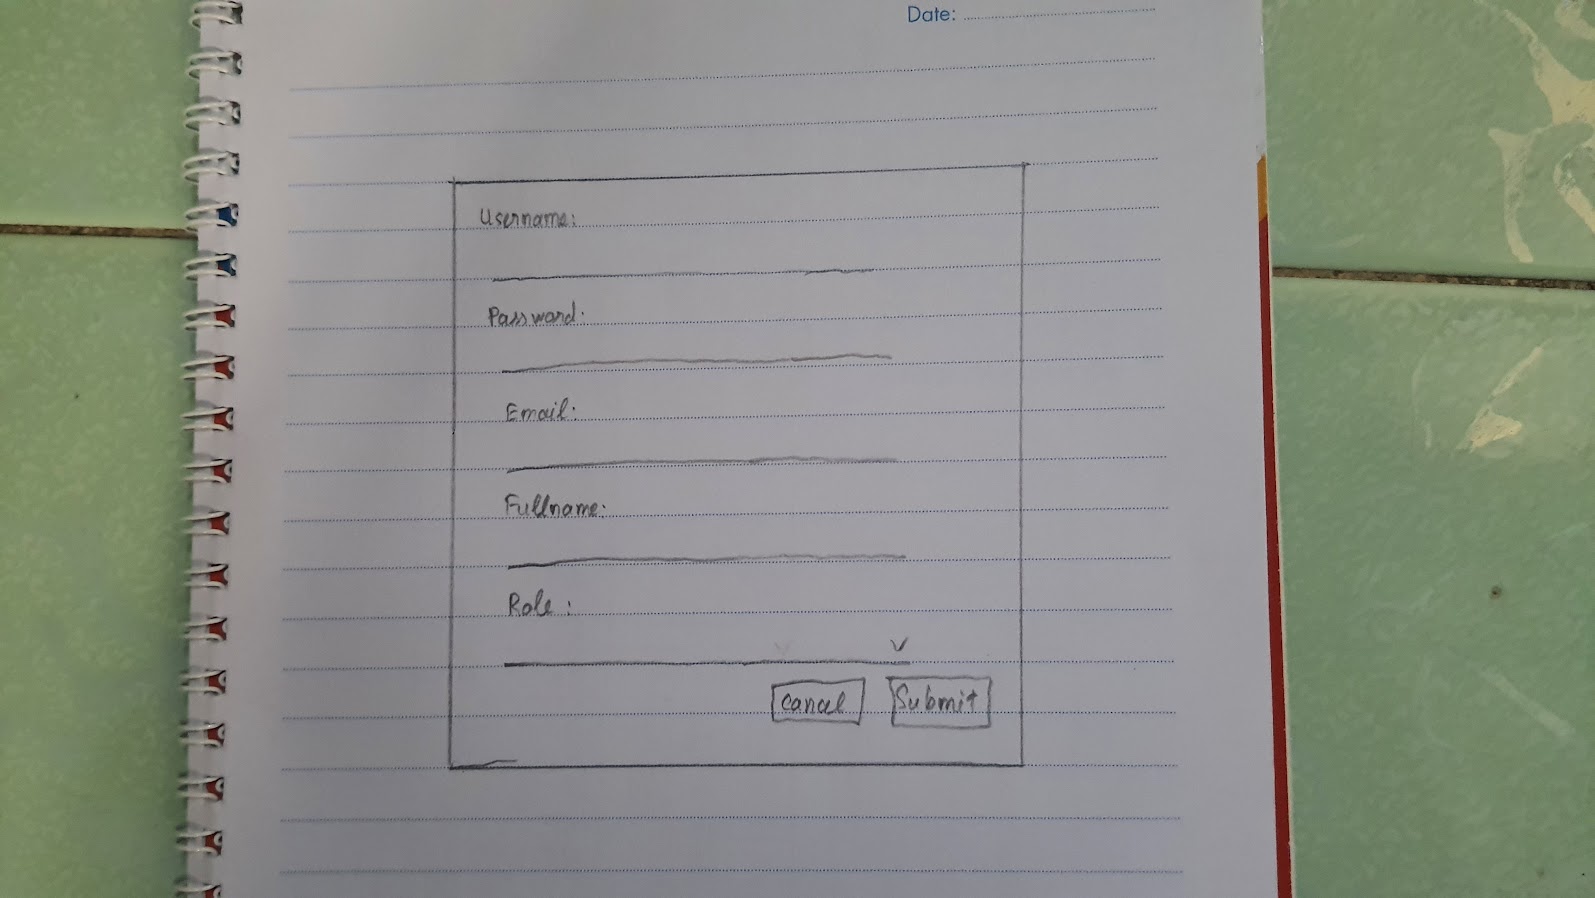 Date:
Username:
Password:
Email:
Fullname:
Role :
Cancel Submit